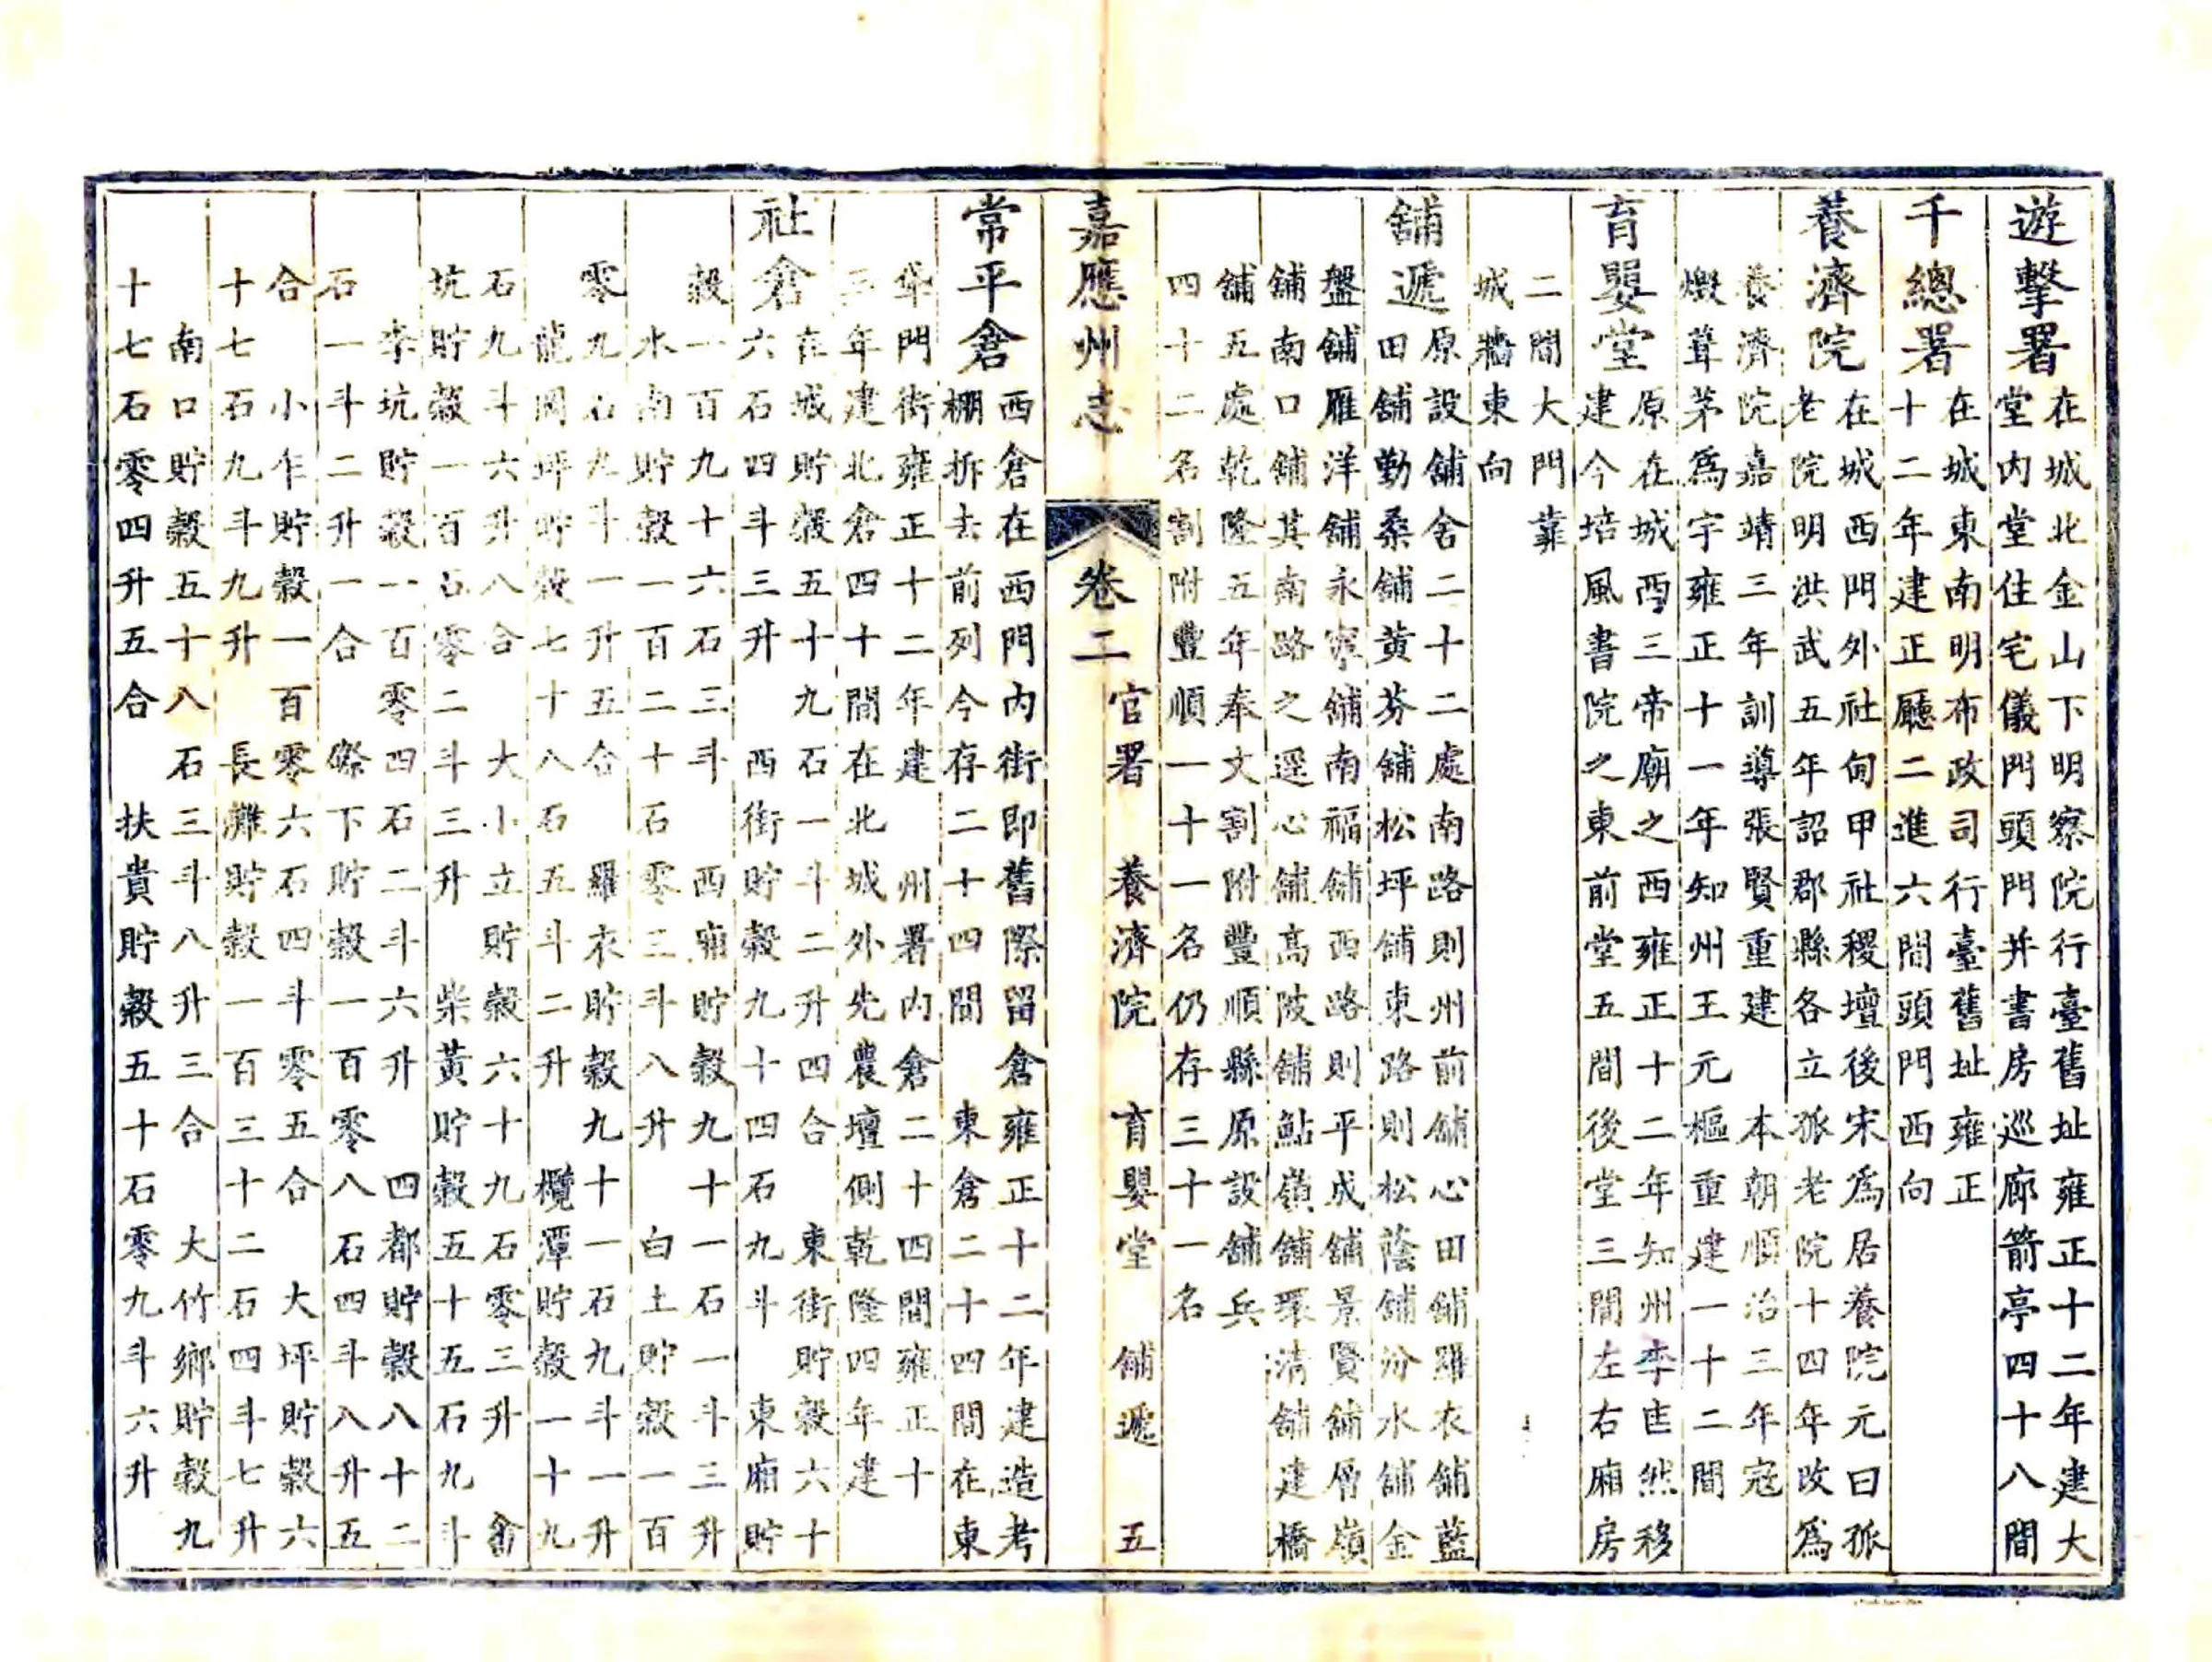 遊擊署
在城北金山下明察院行臺舊址雍正十二年建大
堂內堂住宅儀門頭門并書房巡廊箭亭四十八間
千總署
在城東南明布政司行臺舊址雍正
十二年建正廳二進六間頭門西向
養濟院
在城西門外社甸甲社稷壇後宋爲居養院元曰孤
老院明洪武五年詔郡縣各立孤老院十四年改爲
養濟院嘉靖三年訓導張賢重建 本朝順治三年寇
燬葺茅爲宇雍正十一年知州王元樞重建一十二間
育嬰堂
原在城西三帝廟之西雍正十二年知州李匡然移
建今培風書院之東前堂五間後堂三間左右廂房
二間大門葦
城牆東向
舖遞
原設舖舍二十二處南路則州前舖心田舖羅衣舖藍
田舖勤桑舖黃芬舖松坪舖東路則松蔭舖汾水舖金
盤舖雁洋舖永寧舖南福舖西路則平成舖景賢舖層嶺
舖南口舖其南路之逕心舖高陂舖鮎嶺舖環清舖建橋
舖五處乾隆五年奉文割附豐順縣原設舖兵
四十二名割附豐順一十一名仍存三十一名
嘉應州志
卷二
官署 養濟院 育嬰堂 舖遞 五
常平倉
西倉在西門內街即舊際留倉雍正十二年建造考
棚拆去前列今存二十四間 東倉二十四間在東
門街雍正十二年建 州署內倉二十四間雍正十
三年建北倉四十間在北城外先農壇側乾隆四年建
社倉
在城貯穀五十九石一斗二升四合 東街貯穀六十
六石四斗三升 西街貯穀九十四石九斗 東廂貯
穀一百九十六石三斗 西廂貯穀九十一石一斗三升
水南貯穀一百二十石零三斗八升 白土貯穀一百
零九石九斗一升五合 羅衣貯穀九十一石九斗一升
龍岡坪貯穀七十八石五斗二升 欖潭貯穀一十九
石九斗六升八合 大小立貯穀六十九石零三升 畬
坑貯穀一百石零二斗三升 柴黃貯穀五十五石九斗
李坑貯穀一百零四石二斗六升 四都貯穀八十二
石一斗二升一合 瘵下貯穀一百零八石四斗八升五
合 小乍貯穀一百零六石四斗零五合 大坪貯穀六
十七石九斗九升 長灘貯穀一百三十二石四斗七升
南口貯穀五十八石三斗八升三合 大竹鄉貯穀九
十七石零四升五合 扶貴貯穀五十石零九斗六升